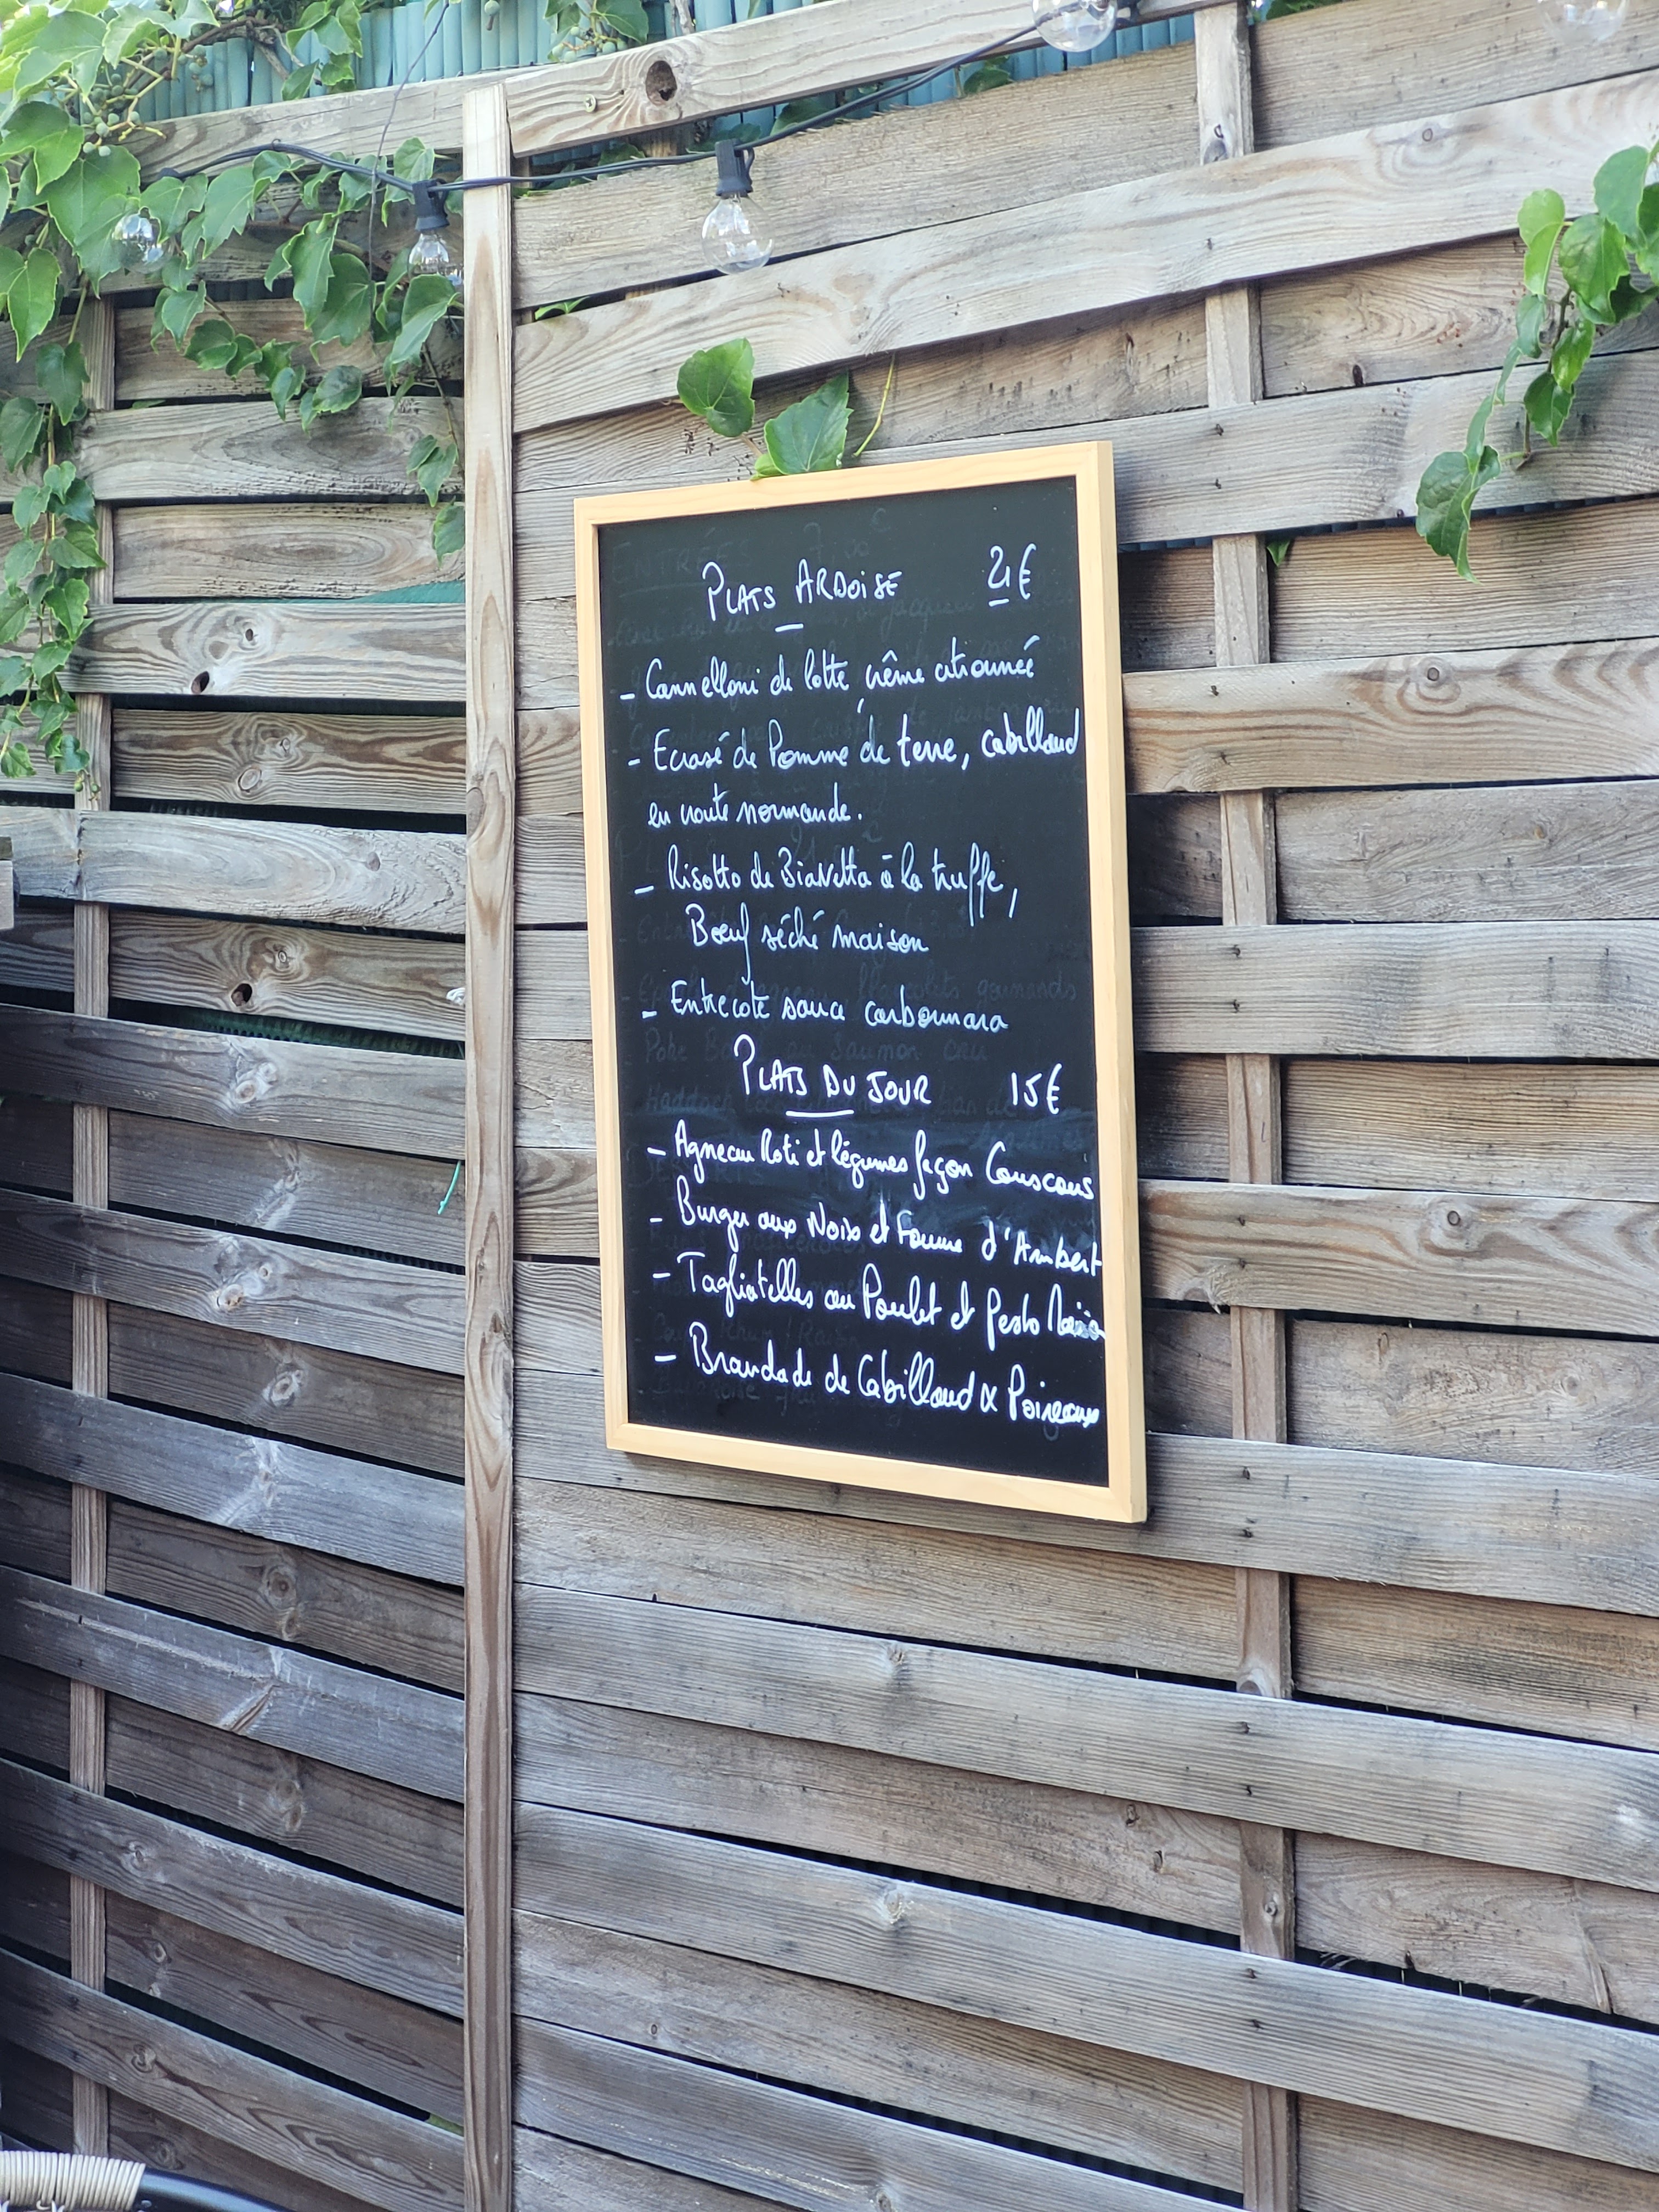 PLATS ARDOISE 21€
- Cannelloni de lotte, crême citronnée
- Ecrasé de Pomme de terre, cabillaud
en croute normande.
- Risotto de Biavetta à la truffe,
Bœuf séché maison
- Entrecôte sauce carbonnara
PLATS DU JOUR 15€
- Agneau Roti et légumes façon Couscous
- Burger aux Noix et Fourme d'Ambert
- Tagliatelles au Poulet et pesto Maison
- Brandade de Cabillaud & Poireaux